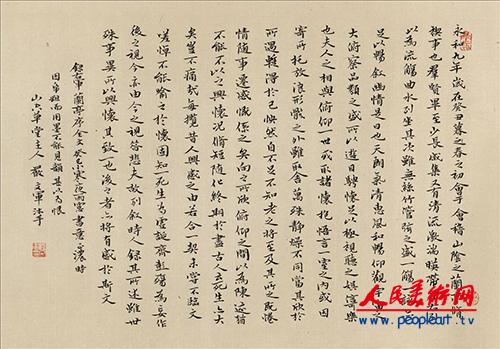 永和九年歲在癸丑暮春之初會于會稽山陰之蘭亭脩
禊事也羣賢畢至少長咸集又有清流激湍暎帶左右
以為流觴曲水列坐其次雖無絲竹管弦之盛一觴一詠亦
足以暢敘幽情是日也天朗氣清惠風和暢仰觀宇宙之
大俯察品類之盛所以遊目騁懷足以極視聽之娛信可樂
也夫人之相與俯仰一世或取諸懷抱悟言一室之內或因
寄所托放浪形骸之外雖趣舍萬殊靜躁不同當其欣於
所遇暫得於己快然自足不知老之將至及其所之既惓
情隨事遷感慨係之矣向之所欣俛仰之間以為陳迹猶
不能不以之興懷況脩短隨化終期於盡古人云死生亦大
矣豈不痛哉每攬昔人興感之由若合一契未嘗不臨文
嗟悼不能喻之於懷固知一死生為虛誕齊彭殤為妄作
後之視今亦由今之視昔悲夫故列敘時人錄其所述雖世
殊事異所以興懷其致一也後之者亦將有感於斯文
錄右軍蘭亭序全文癸巳小寒夜雨窗書時
因帋粗而用墨不能見韻甚以為恨
草堂主人文軍沐手
人民美術网
www.peopleart.tv